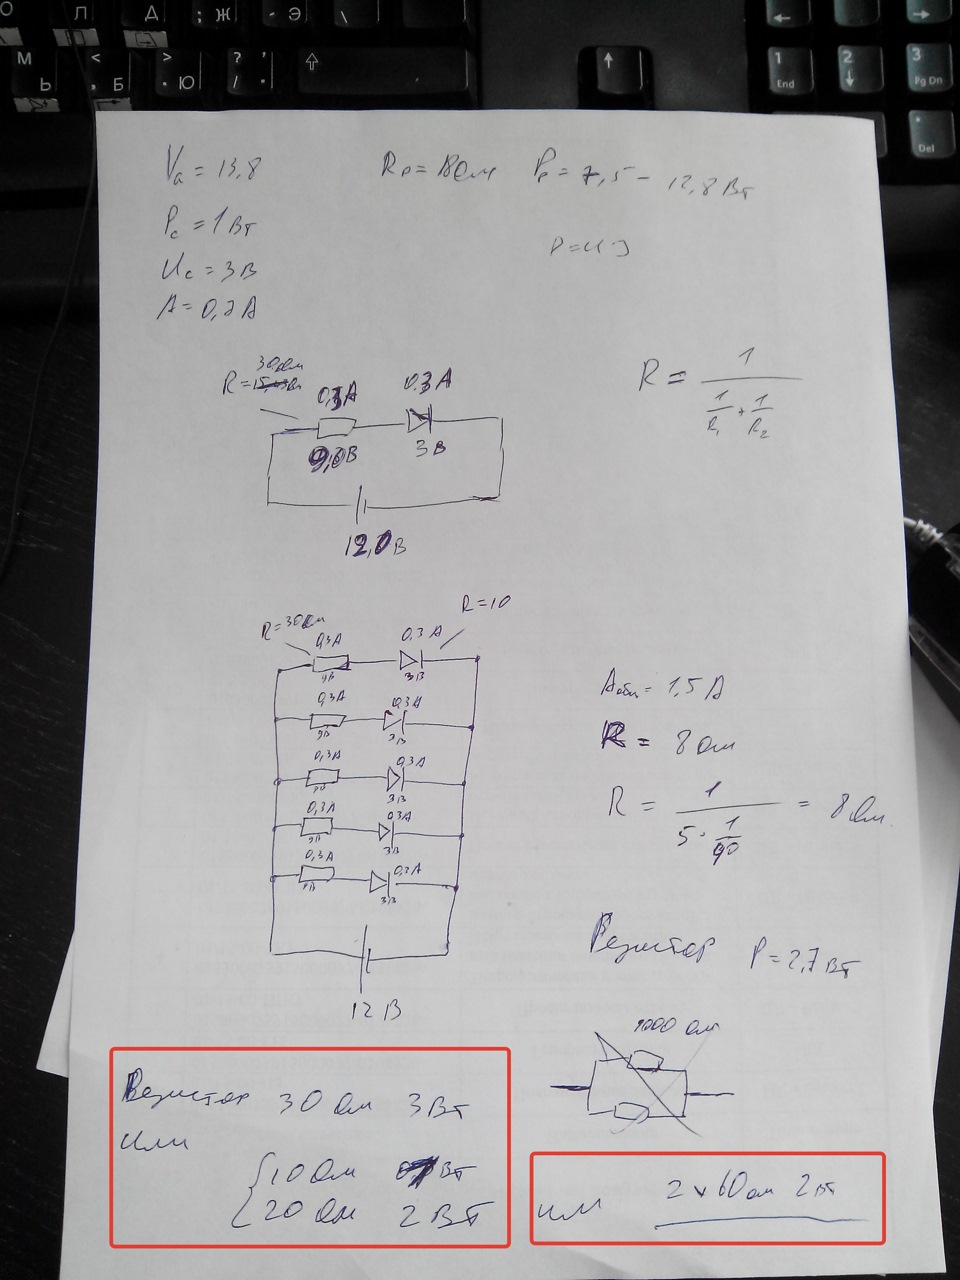 О Л Д ; Ж - Э \
М Ь < , Б > . Ю ? / ' . ⇧
↑
← →
1 End 2 ↓ 3 Pg Dn
Del
Va = 13,8
Rр = 8 Ом Pр = 7,5 - 12,8 Вт
Pс = 1 Вт
P = U I
Uс = 3 В
A = 0,2 A
30 Ом
R =
0,3 A 0.3 A
9,0 В 3 В
12,0 В
R = 1 / (1/R1 + 1/R2)
R = 30 Ом R = 10
0,3 A 0.3 A
9В 3В
0,3 A 0,3 A
9В 3В
0,3 A 0,3 A
9В 3В
0,3 A 0,3 A
9В 3В
0,3 A 0,2 A
9В 3В
12 В
Aобщ = 1,5 A
R = 8 Ом
R = 1 / (5 · 1/40) = 8 Ом.
Резистор P = 2,7 Вт
1000 Ом
Резистор 30 Ом 3 Вт
или
{ 10 Ом 1 Вт
20 Ом 2 Вт
или 2 x 60 Ом 2 Вт